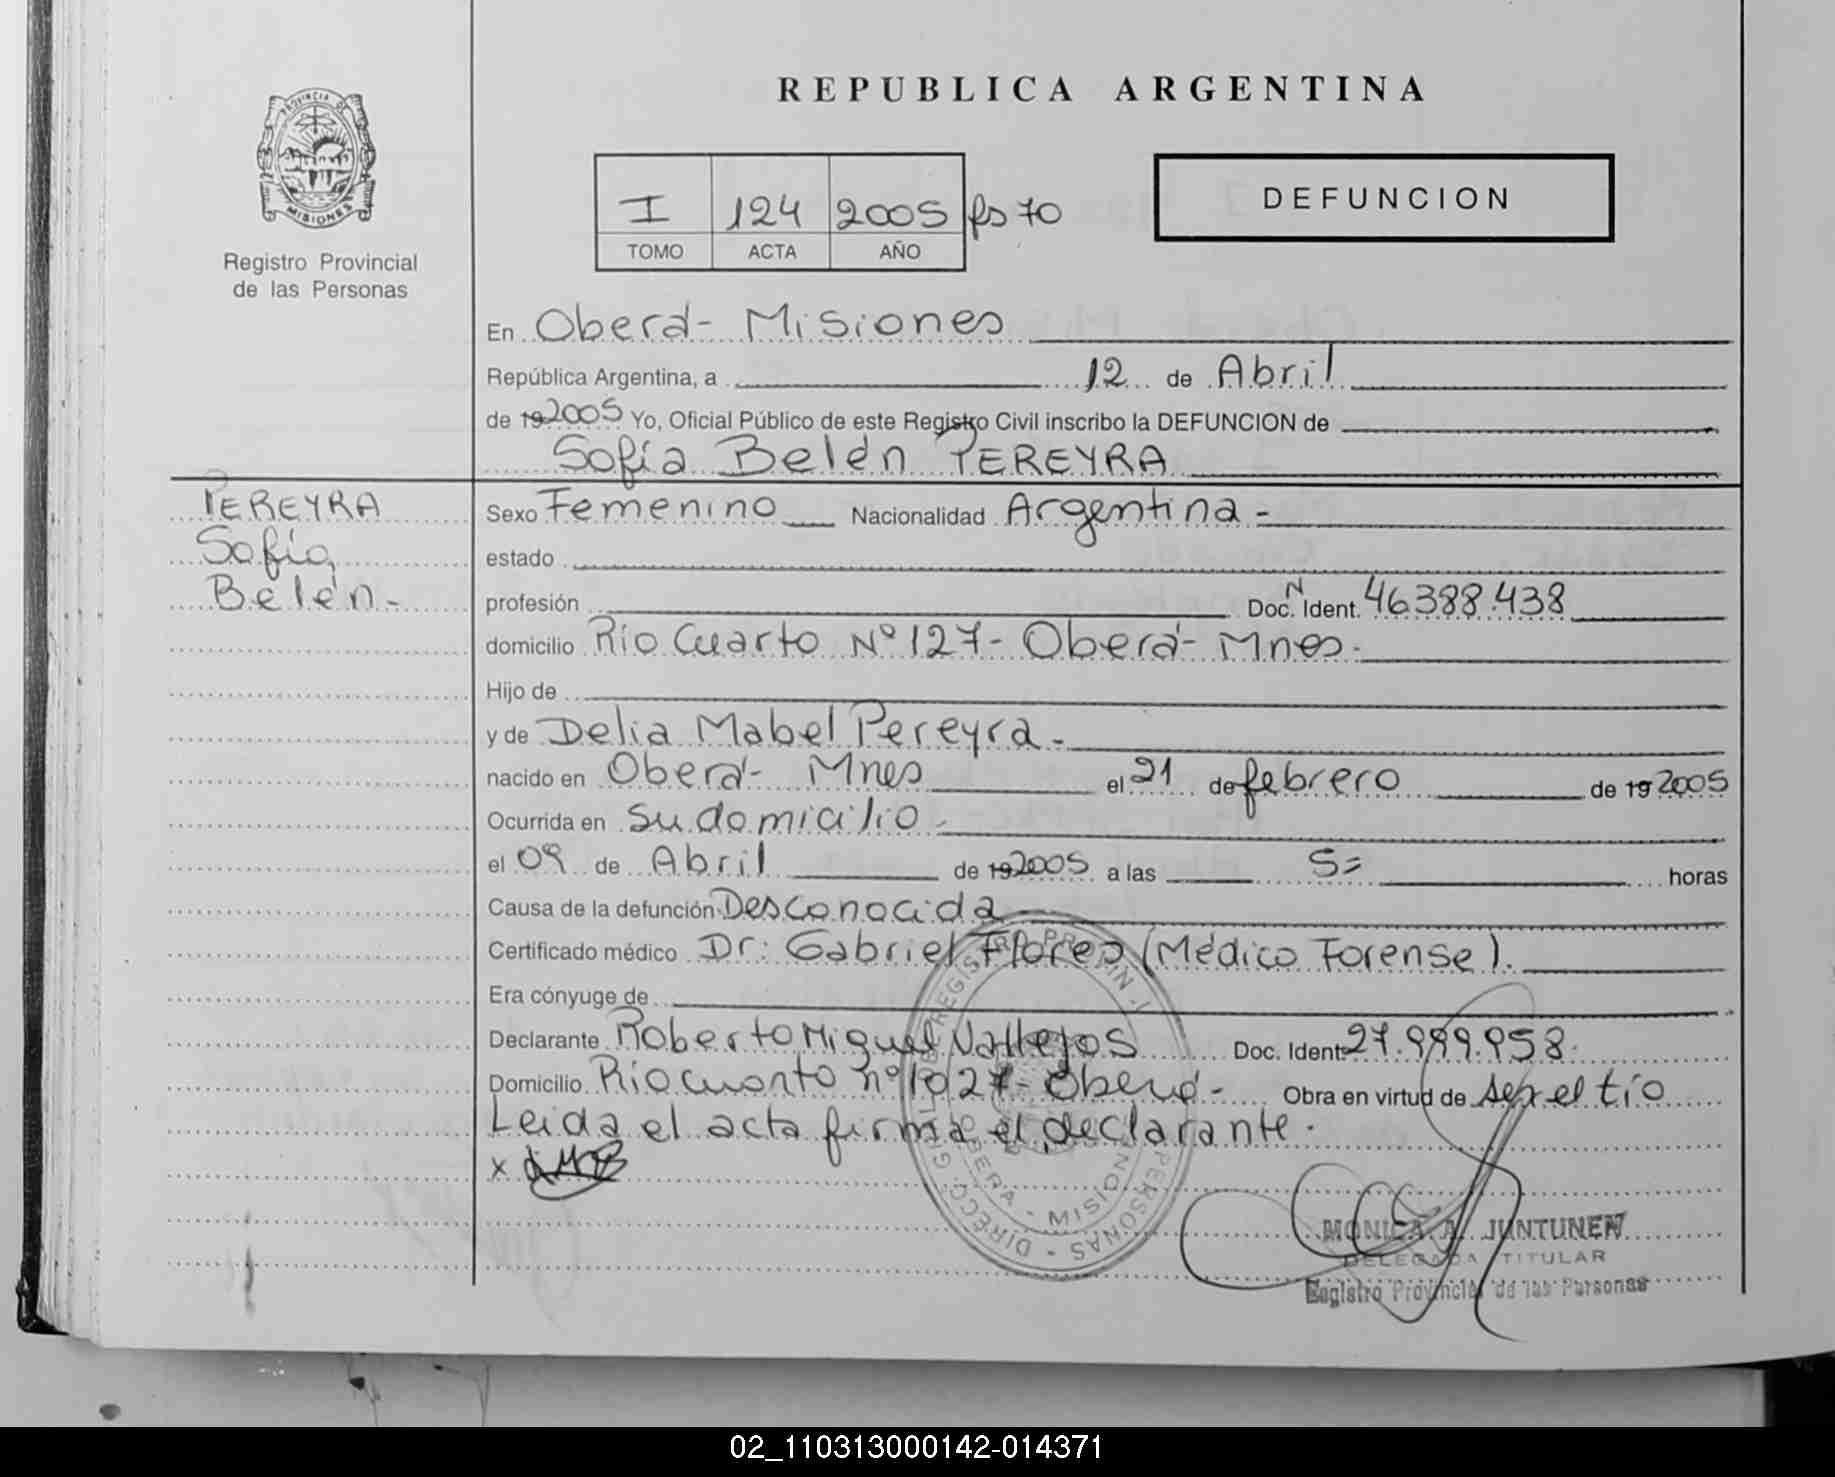 REPUBLICA ARGENTINA
PROVINCIA DE
MISIONES
Registro Provincial
de las Personas
I 124 2005 fs 70
TOMO ACTA AÑO
DEFUNCION
En Oberá - Misiones
República Argentina, a 12 de Abril
de 19 2005 Yo, Oficial Público de este Registro Civil inscribo la DEFUNCION de
Sofía Belén PEREYRA
PEREYRA
Sofía
Belén -
Sexo Femenino Nacionalidad Argentina -
estado
profesión Doc. N Ident. 46388.438
domicilio Río Cuarto Nº 127 - Oberá - Mnes -
Hijo de
y de Delia Mabel Pereyra -
nacido en Oberá - Mnes el 21 de febrero de 19 2005
Ocurrida en su domicilio -
el 09 de Abril de 19 2005 a las 5= horas
Causa de la defunción Desconocida
Certificado médico Dr: Gabriel Flores (Médico Forense).
Era cónyuge de
Declarante Roberto Miguel Vallejos Doc. Ident. 27.999.958
Domicilio Río cuarto nº 1027 - Oberá - Obra en virtud de ser el tío
Leida el acta firma el declarante.
x
MONICA A. JUNTUNEN
DELEGADA TITULAR
Registro Provincial de las Personas
02_110313000142-014371